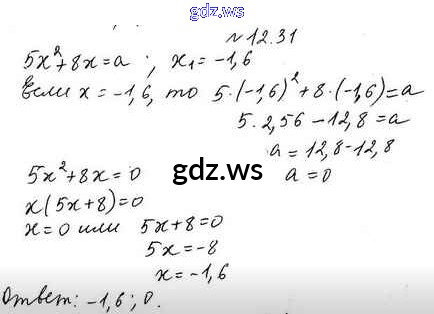 gdz.ws
№12.31
5x²+8x=a ; x₁=-1,6
Если x=-1,6, то 5·(-1,6)²+8·(-1,6)=a
5·2,56-12,8=a
a=12,8-12,8
a=0
5x²+8x=0
gdz.ws
x(5x+8)=0
x=0 или 5x+8=0
5x=-8
x=-1,6
Ответ: -1,6; 0.